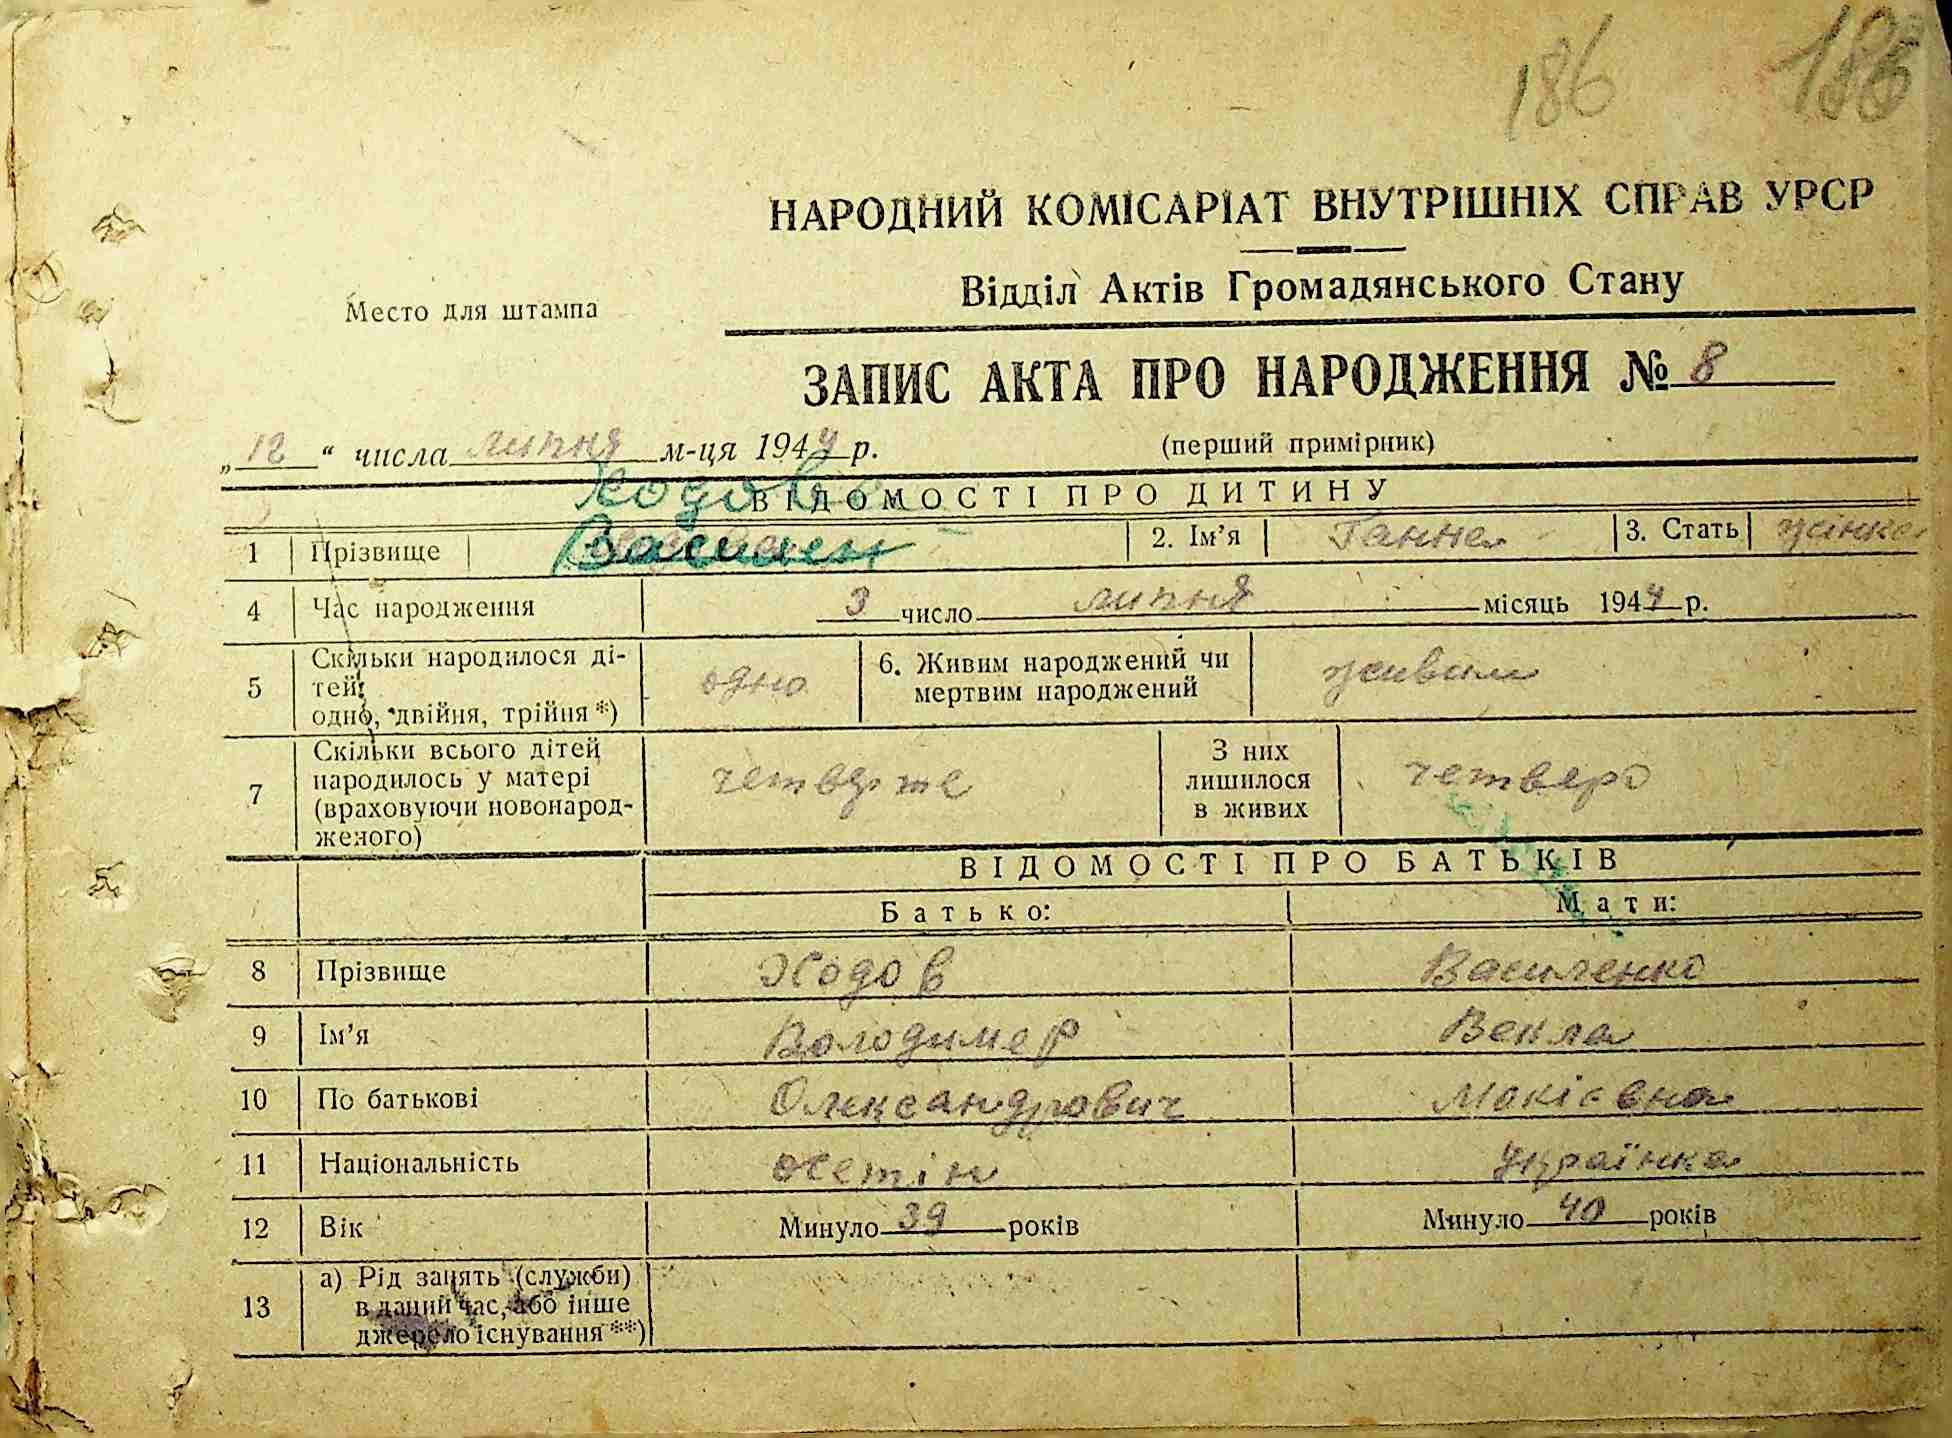 186
НАРОДНИЙ КОМІСАРІАТ ВНУТРІШНІХ СПРАВ УРСР
Відділ Актів Громадянського Стану
Место для штампа
ЗАПИС АКТА ПРО НАРОДЖЕННЯ № 8
„ 12 “ числа липня м-ця 1944 р. (перший примірник)
ВІДОМОСТІ ПРО ДИТИНУ
1 Прізвище 2. Ім'я Ганна 3. Стать жінка
4 Час народження 3 число липня місяць 1944 р.
5 Скільки народилося ді-
тей:
одно, двійня, трійня *) одно 6. Живим народжений чи
мертвим народжений живим
7 Скільки всього дітей
народилось у матері
(враховуючи новонарод-
женого) З них
лишилося
в живих четверо
ВІДОМОСТІ ПРО БАТЬКІВ
Батько: Мати:
8 Прізвище Ходов Василенко
9 Ім'я Володимер Векла
10 По батькові Олександрович Мокієвна
11 Національність осетін українка
12 Вік Минуло 39 років Минуло 40 років
13 а) Рід занять (служби)
в даний час, або інше
джерело існування **)